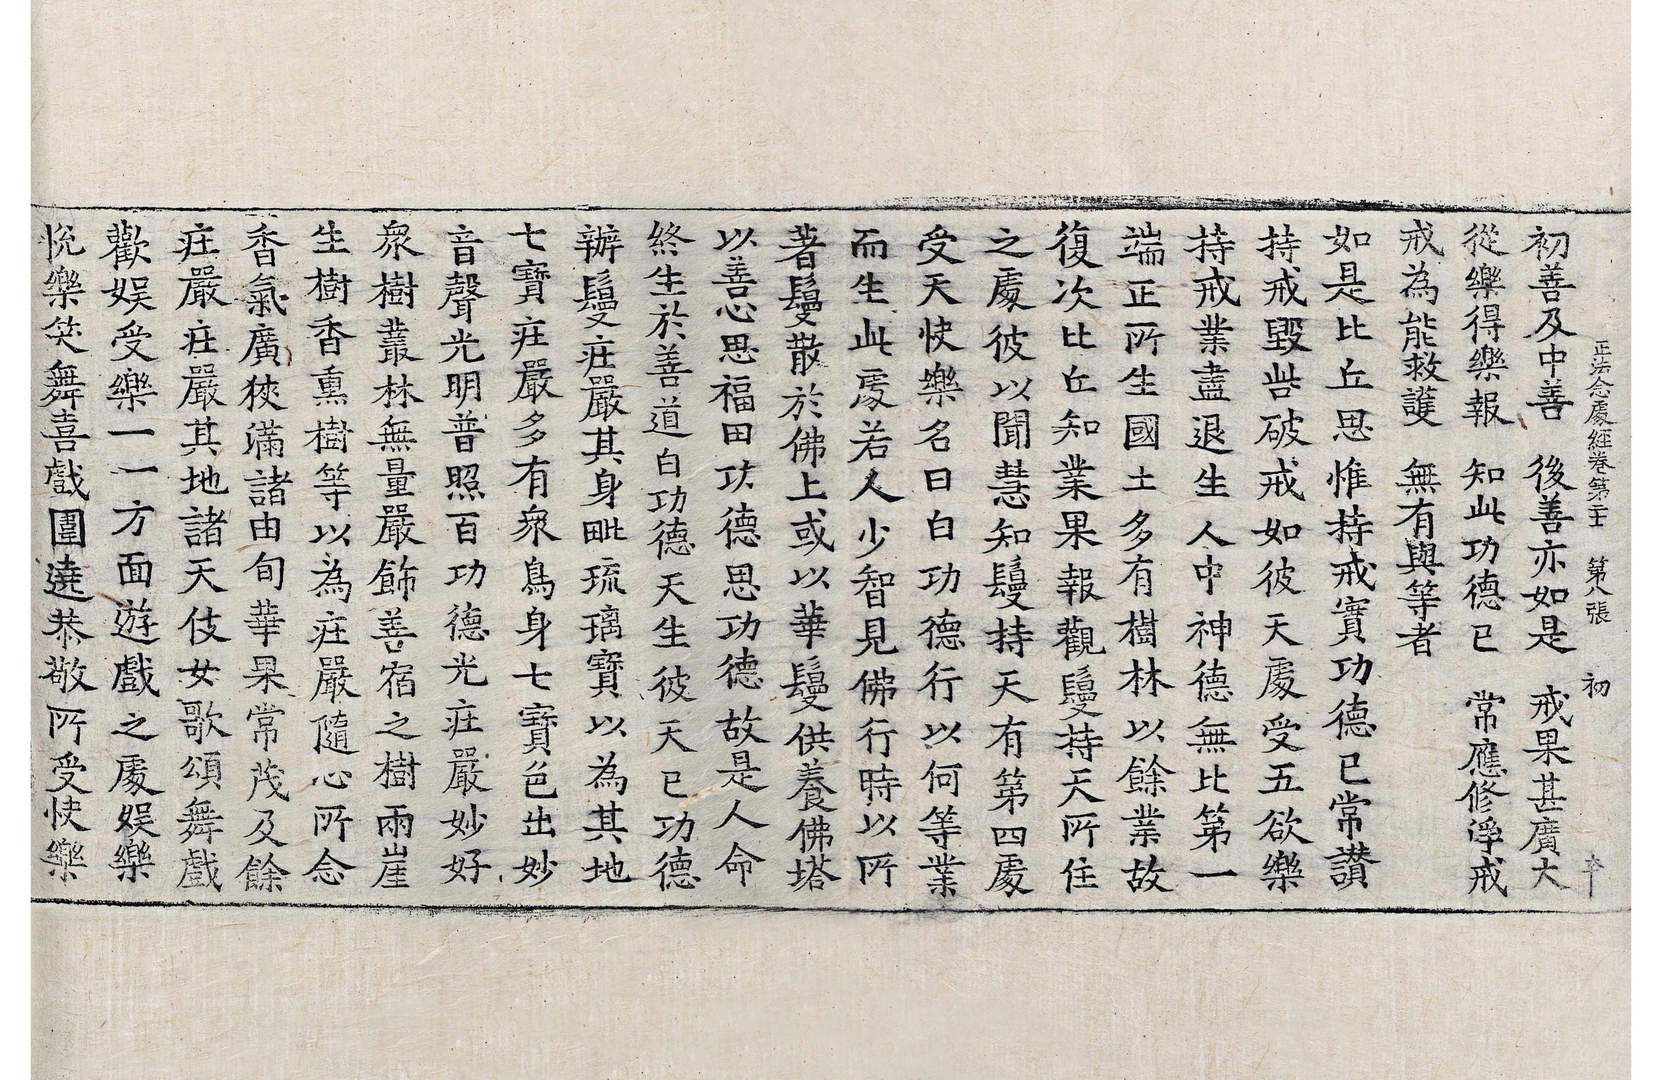 正法念處經卷第二十二 第八張 初
初善及中善 後善亦如是 戒果甚廣大
從樂得樂報 知此功德已 常應修淨戒
戒為能救護 無有與等者
如是比丘思惟持戒實功德已常讃
持戒毀呰破戒如彼天處受五欲樂
持戒業盡退生人中神德無比第一
端正所生國土多有樹林以餘業故
復次比丘知業果報觀鬘持天所住
之處彼以聞慧知鬘持天有第四處
受天快樂名曰白功德行以何等業
而生此處若人少智見佛行時以所
著鬘散於佛上或以華鬘供養佛塔
以善心思福田功德思功德故是人命
終生於善道白功德天生彼天已功德
辦鬘莊嚴其身毗琉璃寶以為其地
七寶莊嚴多有衆鳥身七寶色出妙
音聲光明普照百功德光莊嚴妙好
衆樹叢林無量嚴飾善宿之樹兩崖
生樹香熏樹等以為莊嚴隨心所念
香氣廣狹滿諸由旬華果常茂及餘
莊嚴莊嚴其地諸天伎女歌頌舞戲
歡娛受樂一一方面遊戲之處娛樂
悅樂笑舞喜戲圍遶恭敬所受快樂